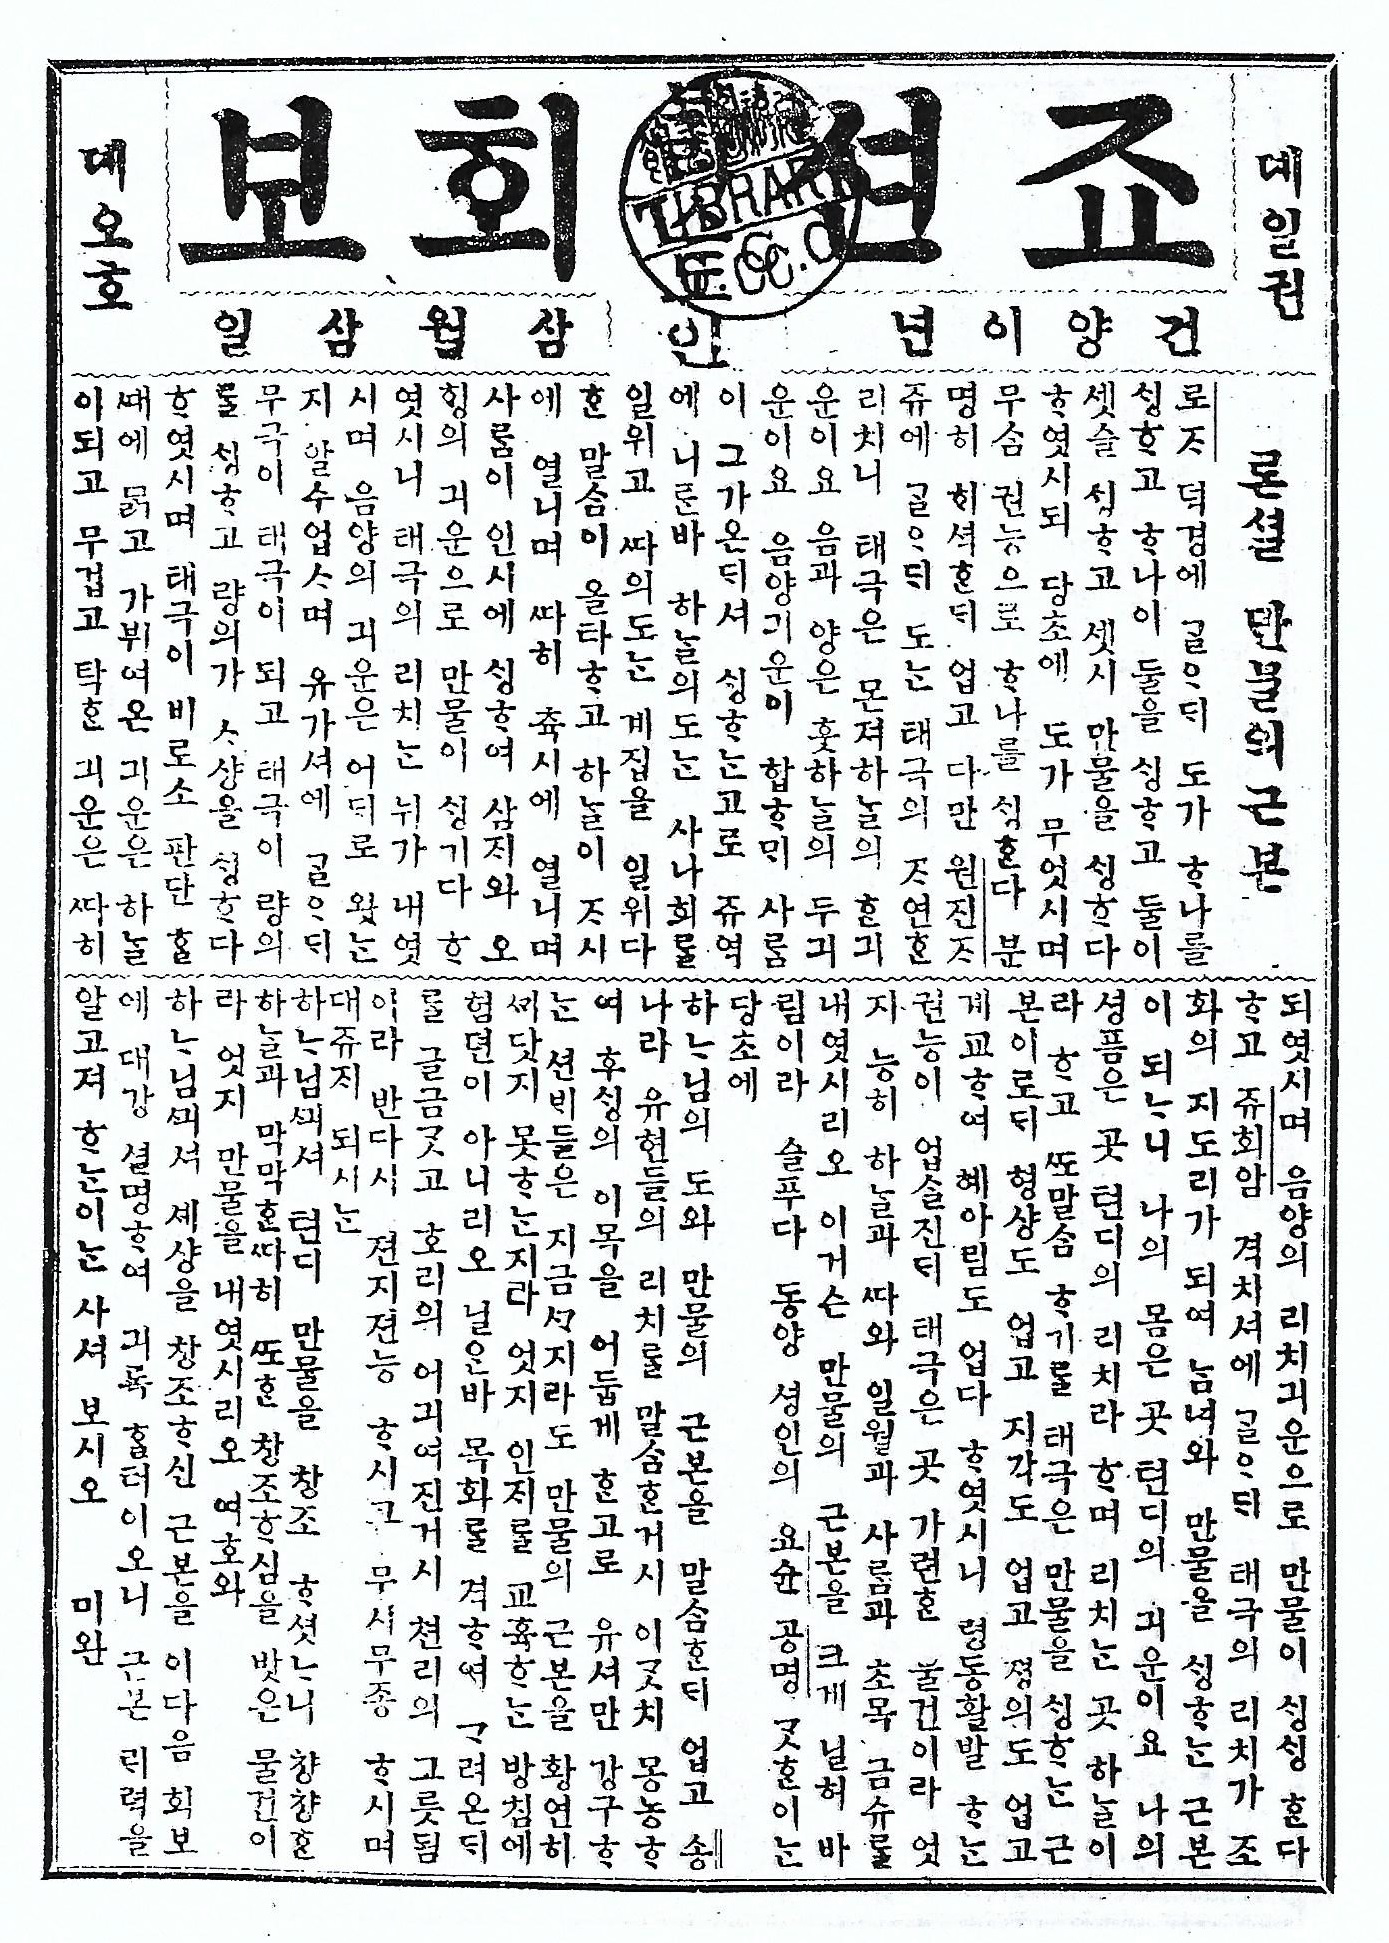 죠션
도인
회보
뎨일권
뎨오호
건양이년
삼월삼일
론셜 만물의근본
로ᄌᆞ 덕경에 ᄀᆞᆯᄋᆞᄃᆡ 도가 ᄒᆞ나를
ᄉᆡᆼᄒᆞ고 ᄒᆞ나이 둘을 ᄉᆡᆼᄒᆞ고 둘이
셋슬 ᄉᆡᆼᄒᆞ고 셋시 만물을 ᄉᆡᆼᄒᆞ다
ᄒᆞ엿시되 당초에 도가 무엇시며
무ᄉᆞᆷ 권능으로 ᄒᆞ나를 ᄉᆡᆼᄒᆞᆫ다 분
명히 ᄒᆡ셕ᄒᆞᆫᄃᆡ 업고 다만 원진ᄌᆞ
쥬에 ᄀᆞᆯᄋᆞᄃᆡ 도ᄂᆞᆫ 태극의 ᄌᆞ연ᄒᆞᆫ
리치니 태극은 몬져하ᄂᆞᆯ의 ᄒᆞᆫ긔
운이요 음과 양은 훗하ᄂᆞᆯ의 두긔
운이요 음양긔운이 합ᄒᆞᄆᆡ 사ᄅᆞᆷ
이 그가온ᄃᆡ셔 ᄉᆡᆼᄒᆞᄂᆞᆫ고로 쥬역
에 니룬바 하ᄂᆞᆯ의도ᄂᆞᆫ 사나희ᄅᆞᆯ
일위고 ᄯᅡ의도ᄂᆞᆫ 계집을 일위다
ᄒᆞᆫ 말ᄉᆞᆷ이 올타ᄒᆞ고 하ᄂᆞᆯ이 ᄌᆞ시
에 열니며 ᄯᅡ히 츅시에 열니며
사ᄅᆞᆷ이 인시에 ᄉᆡᆼᄒᆞ여 삼ᄌᆡ와 오
ᄒᆡᆼ의 긔운으로 만물이 ᄉᆡᆼ기다 ᄒᆞ
엿시니 태극의 리치ᄂᆞᆫ 뉘가 내엿
시며 음양의 긔운은 어ᄃᆡ로 왔ᄂᆞᆫ
지 알수업ᄉᆞ며 유가셔에 ᄀᆞᆯᄋᆞᄃᆡ
무극이 태극이 되고 태극이 량의
ᄅᆞᆯ ᄉᆡᆼᄒᆞ고 량의가 ᄉᆞ샹을 ᄉᆡᆼᄒᆞ다
ᄒᆞ엿시며 태극이 비로소 판단 ᄒᆞᆯ
ᄯᅢ에 ᄆᆞᆰ고 가뷔여온 긔운은 하ᄂᆞᆯ
이되고 무겁고 탁ᄒᆞᆫ 긔운은 ᄯᅡ히
되엿시며 음양의 리치긔운으로 만물이 ᄉᆡᆼᄉᆡᆼ ᄒᆞᆫ다
ᄒᆞ고 쥬회암 격치셔에 ᄀᆞᆯᄋᆞᄃᆡ 태극의 리치가 조
화의 지도리가 되여 남녀와 만물을 ᄉᆡᆼᄒᆞᄂᆞᆫ 근본
이 되ᄂᆞ니 나의 몸은 곳 텬디의 긔운이요 나의
셩픔은 곳 텬디의 리치라 ᄒᆞ며 리치ᄂᆞᆫ 곳 하ᄂᆞᆯ이
라 ᄒᆞ고 ᄯᅩ말ᄉᆞᆷ ᄒᆞ기ᄅᆞᆯ 태극은 만물을 ᄉᆡᆼᄒᆞᄂᆞᆫ 근
본이로ᄃᆡ 형샹도 업고 지각도 업고 졍의도 업고
계교ᄒᆞ여 혜아림도 업다 ᄒᆞ엿시니 령동활발 ᄒᆞᄂᆞᆫ
권능이 업슬진ᄃᆡ 태극은 곳 가련ᄒᆞᆫ 물건이라 엇
지 능히 하ᄂᆞᆯ과 ᄯᅡ와 일월과 사ᄅᆞᆷ과 초목 금슈ᄅᆞᆯ
내엿시리오 이거슨 만물의 근본을 크게 닐허 바
림이라 슬푸다 동양 셩인의 요슌 공명 ᄀᆞᆺᄒᆞᆫ이ᄂᆞᆫ
당초에
하ᄂᆞ님의 도와 만물의 근본을 말ᄉᆞᆷᄒᆞᆫᄃᆡ 업고 송
나라 유현들의 리치ᄅᆞᆯ 말ᄉᆞᆷᄒᆞᆫ거시 이ᄀᆞᆺ치 몽농ᄒᆞ
여 후ᄉᆡᆼ의 이목을 어둡게 ᄒᆞᆫ고로 유셔만 강구ᄒᆞ
ᄂᆞᆫ 션ᄇᆡ들은 지금ᄭᆞ지라도 만물의 근본을 황연히
ᄭᆡ닷지 못ᄒᆞᄂᆞᆫ지라 엇지 인ᄌᆡᄅᆞᆯ 교휵ᄒᆞᄂᆞᆫ 방침에
험뎐이 아니리오 닐은바 목화ᄅᆞᆯ 격ᄒᆞ여 ᄀᆞ려온ᄃᆡ
ᄅᆞᆯ 글금ᄀᆞᆺ고 호리의 어긔여진거시 쳔리의 그릇됨
이라 반다시 젼지젼능 ᄒᆞ시고 무시무죵 ᄒᆞ시며
대쥬ᄌᆡ 되시ᄂᆞᆫ
하ᄂᆞ님ᄭᅴ셔 텬디 만물을 창조 ᄒᆞ셧ᄂᆞ니 챵챵ᄒᆞᆫ
하ᄂᆞᆯ과 막막ᄒᆞᆫᄯᅡ히 ᄯᅩᄒᆞᆫ 창조ᄒᆞ심을 밧은 물건이
라 엇지 만물을 내엿시리오 여호와
하ᄂᆞ님ᄭᅴ셔 셰샹을 창조ᄒᆞ신 근본을 이다음 회보
에 대강 셜명ᄒᆞ여 긔록 ᄒᆞᆯ터이오니 근본 ᄅᆡ력을
알고져 ᄒᆞᄂᆞᆫ이ᄂᆞᆫ 사셔 보시오 미완
LIBRARY
C.C.C.